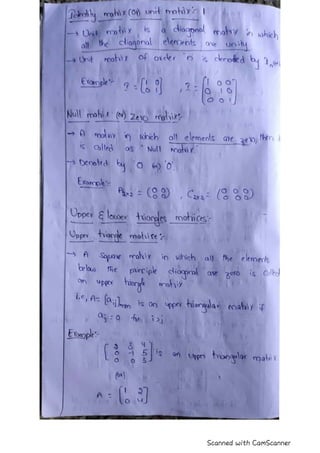 Identity matrix (or) unit matrix:- I
→ Unit matrix is a diagonal matrix in which
all the diagonal elements are unity.
→ Unit matrix of order n is denoted by In
Example:- I = [1 0 0 1] , I = [1 0 0 0 1 0 0 0 1]
Null matrix (or) zero matrix:-
→ A matrix in which all elements are zero, then
is called as "Null matrix".
→ Denoted by O (or) 'O'.
Example:- A2x2 = (0 0 0 0) , C2x3 = (0 0 0 0 0 0)
Upper & lower triangles matrices:-
Upper triangle matrixe:-
→ A square matrix in which all the elements
below the principle diagonal are zero is called
an upper triangle matrix
i.e, A = [aij]nxn is an upper triangular matrix if
aij = 0 for i>j
Example:-
[2 3 4 0 -1 5 0 0 3] is an upper triangular matrix
(or)
A = [1 2 0 4]
Scanned with CamScanner